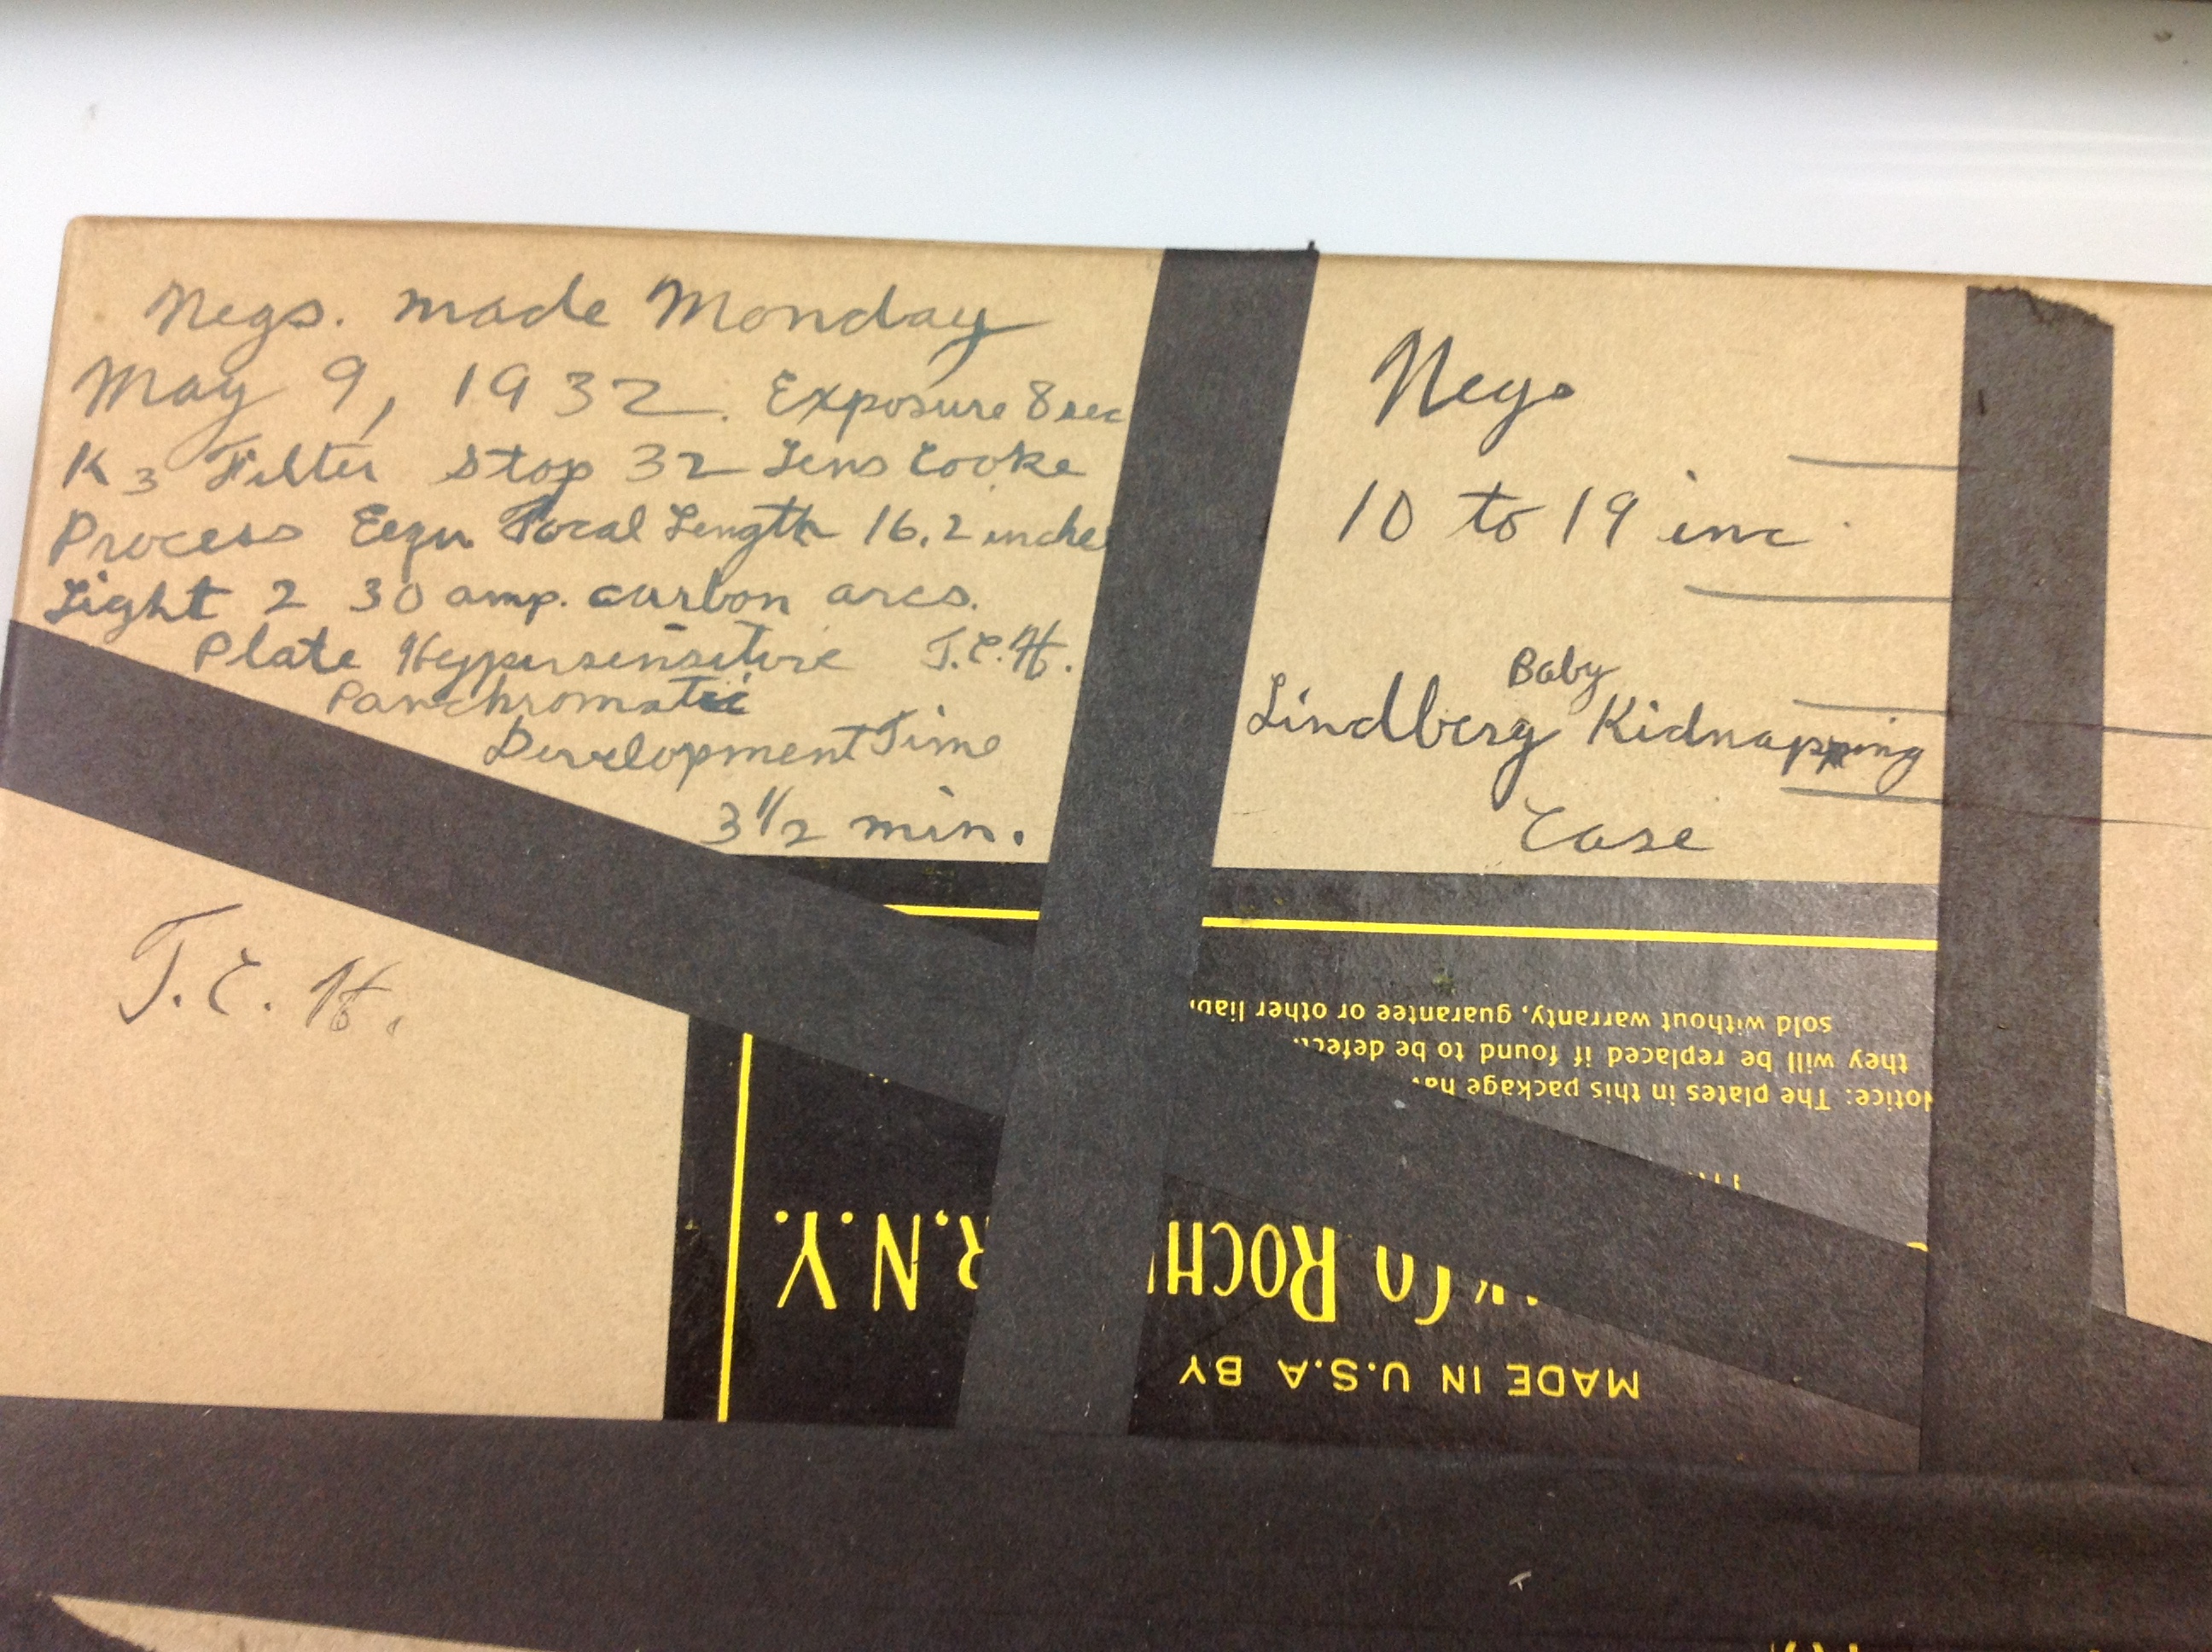 Negs. made Monday
May 9, 1932. Exposure 8 sec
K3 Filter Stop 32 Lens Cooke
Process Eequ Focal Length 16.2 inche
Light 2 30 amp. carbon arcs.
Plate Hypersensitive J.C.H.
Panchromatic
Development Time
3 1/2 min.
Negs
10 to 19 inc
Baby
Lindberg Kidnapping
Case
J.C.H.
MADE IN U.S.A BY
Co ROCH R.N.Y.
Notice: The plates in this package
they will be replaced if found to be defec
sold without warranty, guarantee or other liab